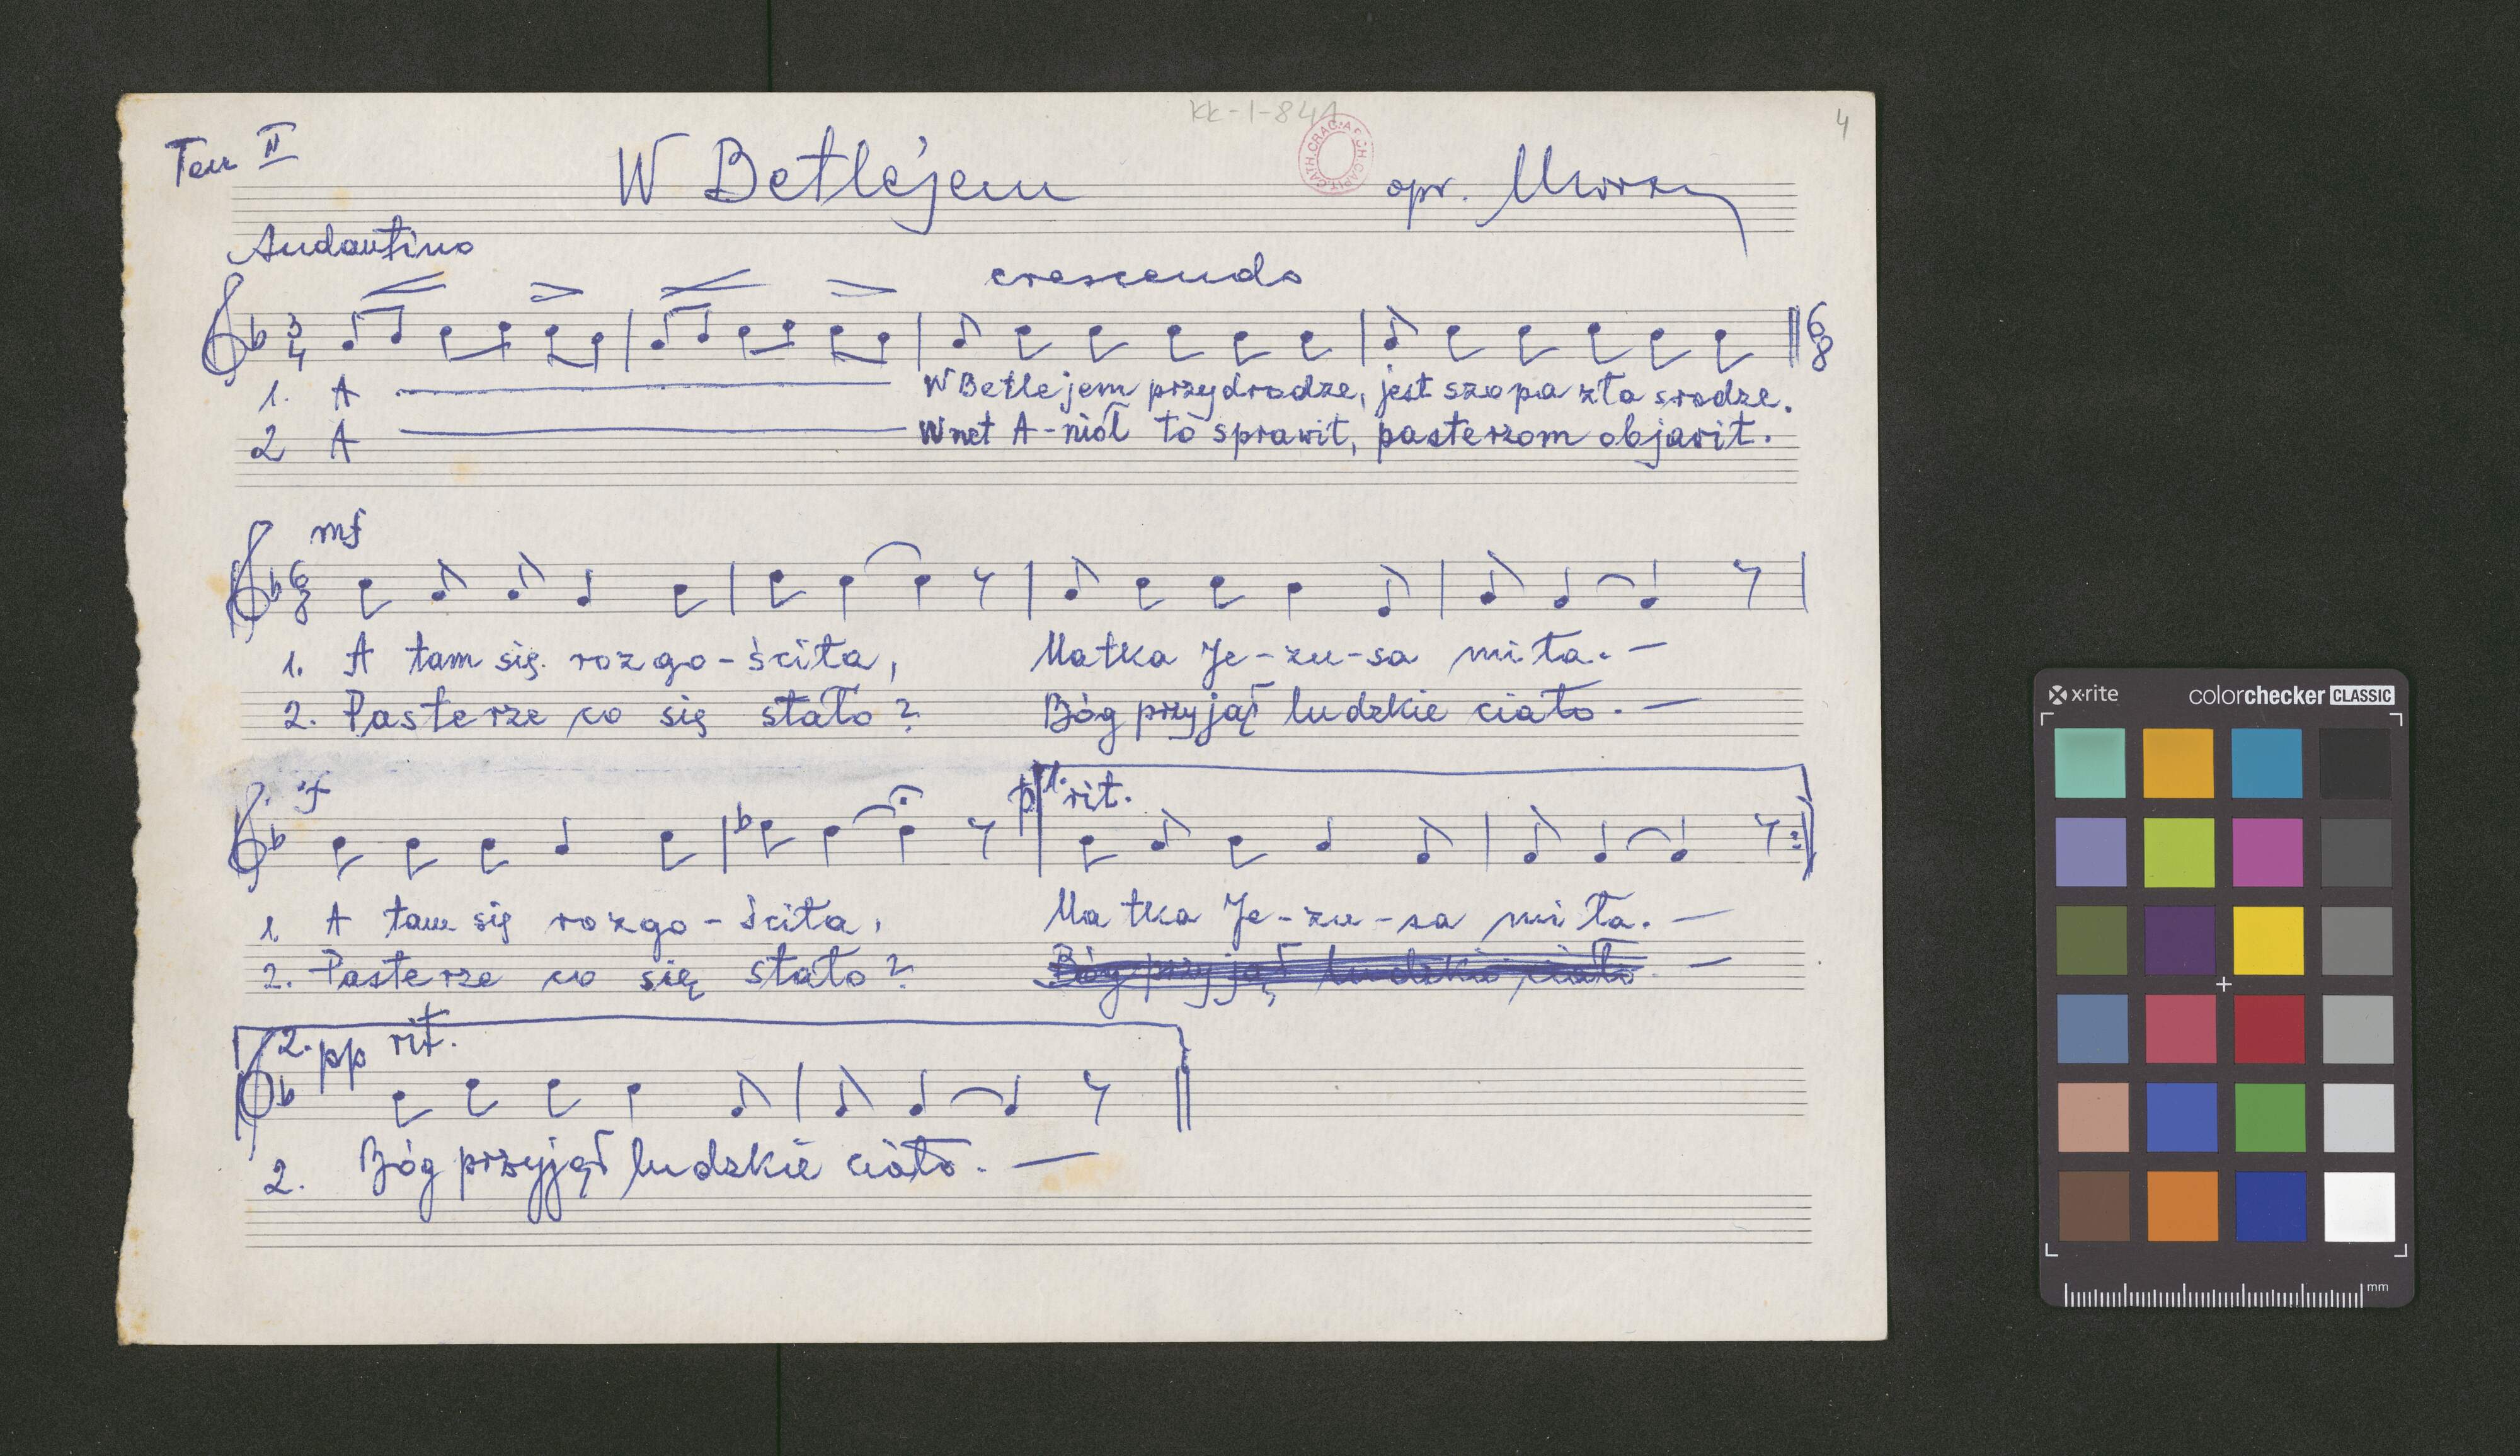 KK-I-841
4
Ten II
W Betlejem
opr.
Andantino
crescendo
3 4
6 8
1. A W Betlejem przy drodze, jest szopa zła srodze.
2 A Wnet A-niół to sprawił, pasterzom objawił.
mf
6 8
1. A tam się rozgo-ściła, Matka Je-zu-sa miła. —
2. Pasterze co się stało? Bóg przyjął ludzkie ciało. —
f p 1. rit.
1. A tam się rozgo-ściła, Matka Je-zu-sa miła. —
2. Pasterze co się stało? Bóg przyjął ludzkie ciało —
2. pp rit.
2. Bóg przyjął ludzkie ciało. —
x-rite colorchecker CLASSIC
mm